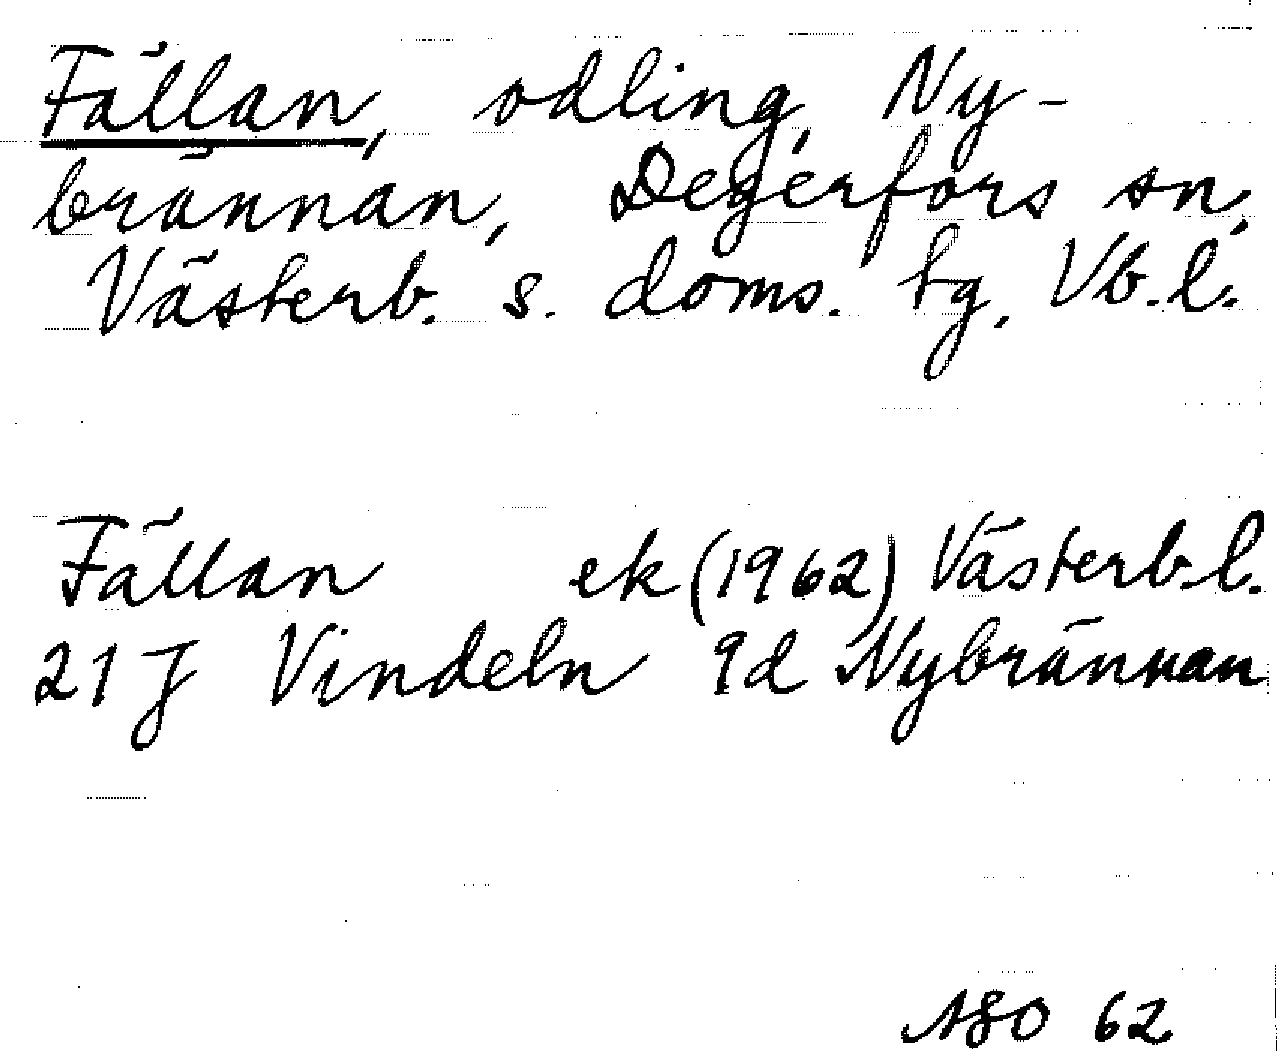 Fällan, odling, Ny-
brännan, Degerfors sn,
Västerb. s. doms. tg, Vb.l.
Fällan ek (1962) Västerb.l.
21 J Vindeln 9d Nybrännan
ASO 62